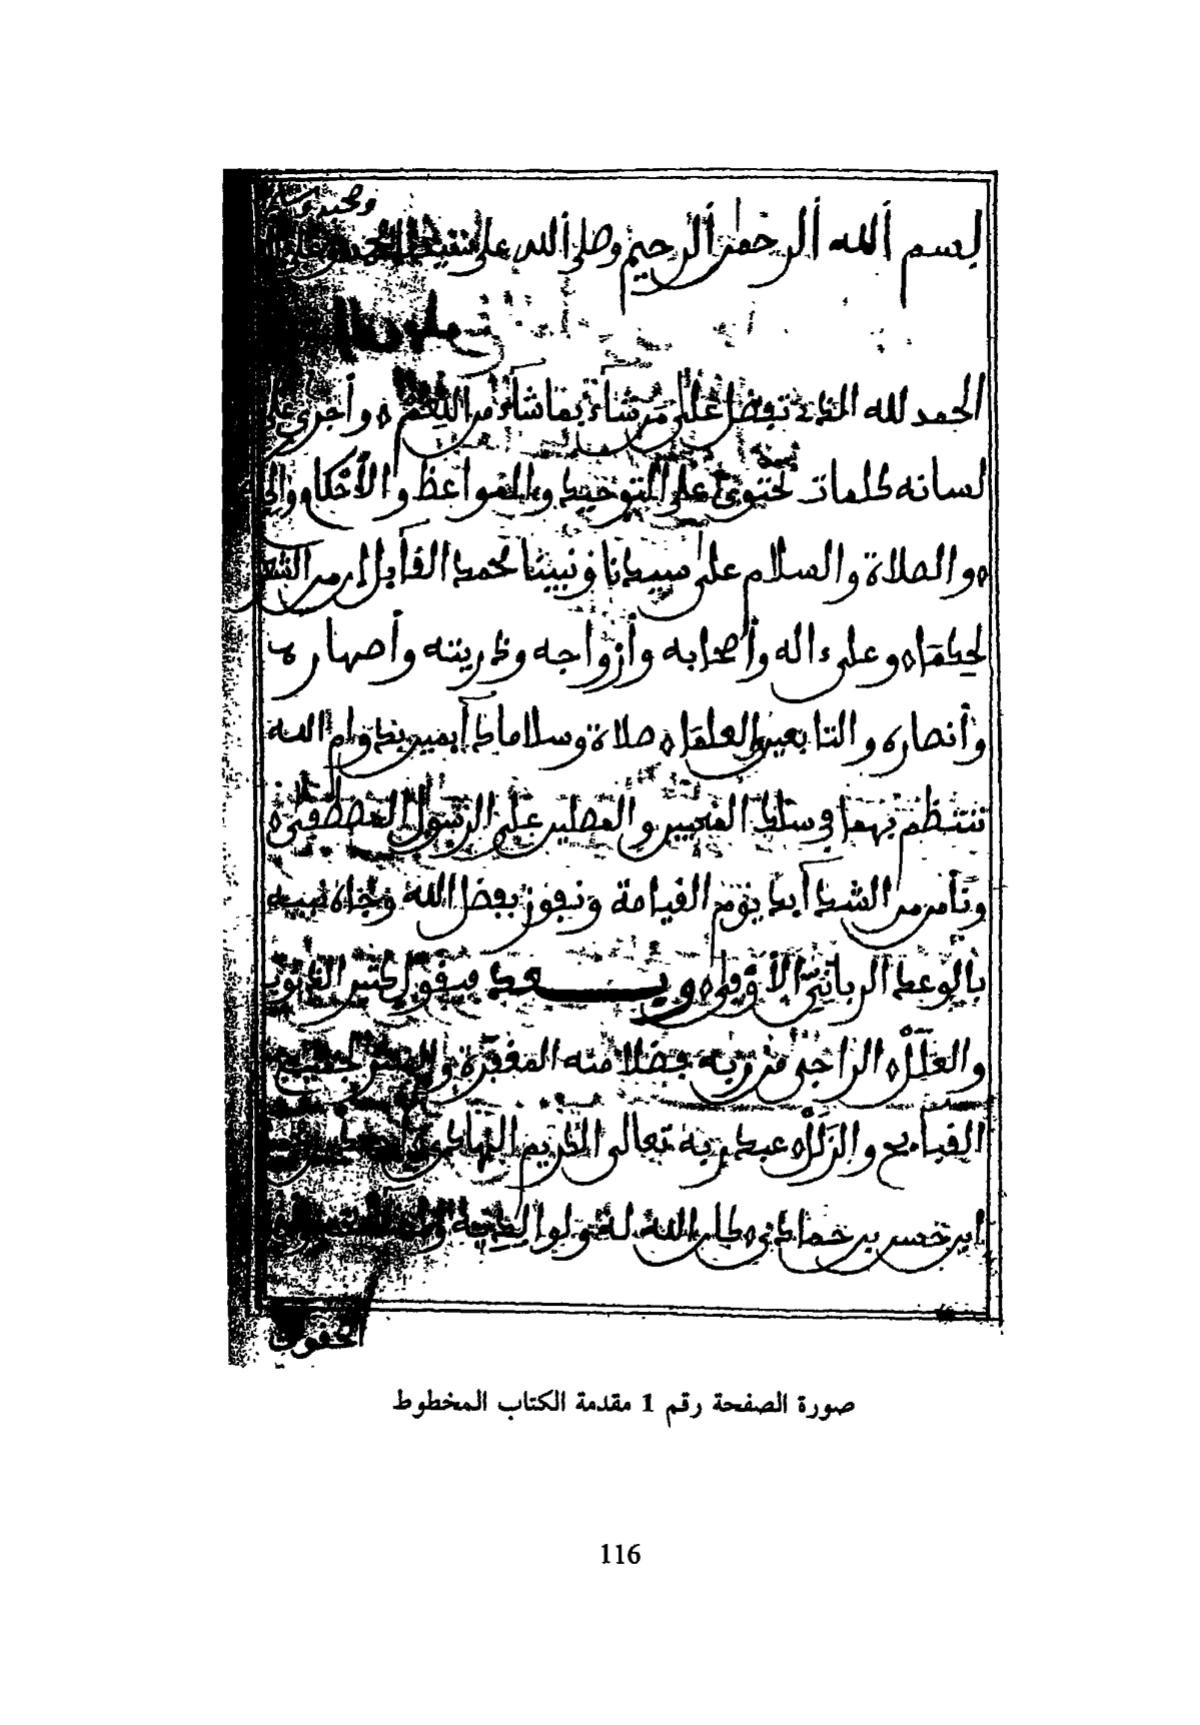 وصحبه وسلم
بسم الله الرحمن الرحيم وصلى الله على سيدنا محمد وعلى ءاله
الحمد لله الذي تفضل على من شاء بما شاء من النعم ه وأجرى على
لسانه كلمات تحتوي على التوحيد والمواعظ والأحكام
ه والصلاة والسلام على سيدنا ونبينا محمد القائل إن من الشعر
لحكما ه وعلى ءاله وأصحابه وأزواجه وذريته وأصهاره
وأنصاره والتابعين والعلما ه صلاة وسلاما دآيمين بدوام الله
ننتظم بهما في سلك المحبين والمصلين على الرسول المصطفى ه
ونأمن من الشدآيد يوم القيامة ونفوز بفضل الله
بالوعد الرباني الأوفى ه وبعد فيقول كثير الذنوب
والعلل ه الراجي من ربه فضلا منه المغفرة والستر لجميع
القبايح والزلل ه عبد ربه تعالى الكريم الهادي
ابن حسن بن حمادي ه كان الله له
الحقوق
صورة الصفحة رقم 1 مقدمة الكتاب المخطوط
116